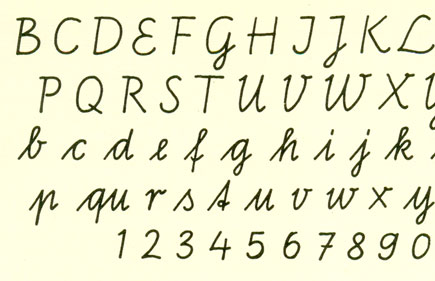 B C D E F G H I J K L
P Q R S T U V W X Y
b c d e f g h i j k
p qu r s t u v w x y
1 2 3 4 5 6 7 8 9 0